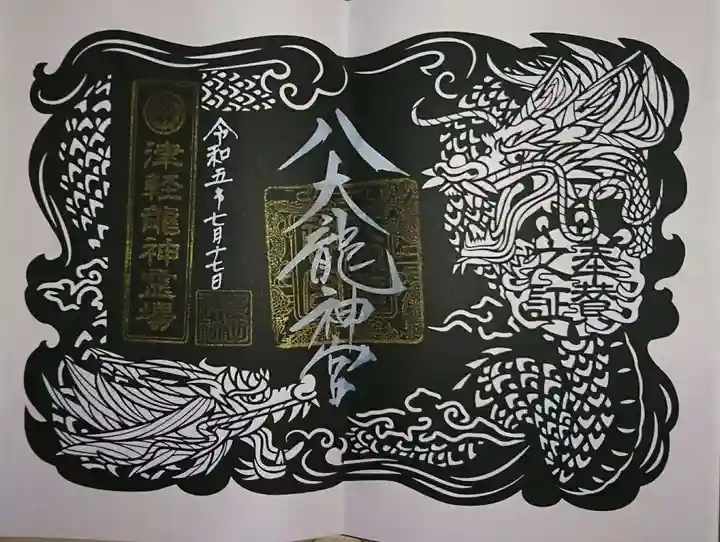 奉着
之証
八大龍神宮
令和五年七月十七日
津軽龍神霊場